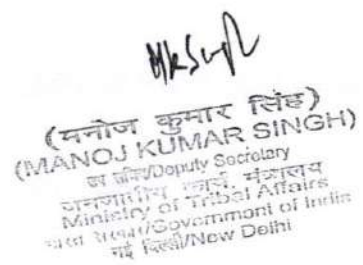 MkSingh
(मनोज कुमार सिंह)
(MANOJ KUMAR SINGH)
उप सचिव/Deputy Secretary
जनजातीय कार्य मंत्रालय
Ministry of Tribal Affairs
भारत सरकार/Government of India
नई दिल्ली/New Delhi